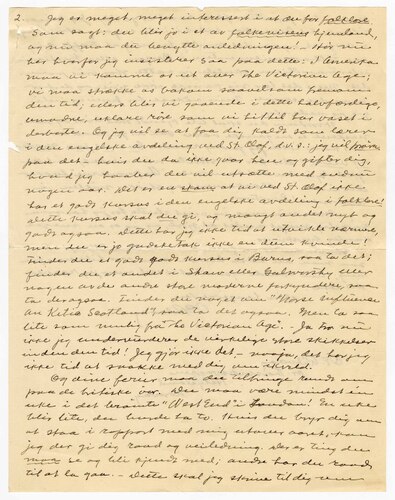 2
Jeg er meget, meget interessert i at du får folklore
som sagt: du blir jo i et av folkevisens hjemland,
og nu maa du benytte anledningen! — Hør nu
her hvorfor jeg insisterer saa paa dette: I Amerika
maa vi komme os ut over the Victorian Age;
vi maa strække os bakom saavel som fremom
den tid, ellers blir vi gaaende i dette halvfærdige,
uklare rør som vi hittil har vaset i
desværre. Og jeg vil se at faa dig kaldt som lærer
i den engelske avdeling ved St. Olaf, d.v.s. jeg vil prøve
paa det hvis du da ikke gaar hen og gifter dig,
hvad jeg haaber du vil utsætte med endnu
nogen aar. Det er en skam at vi ved St. Olaf ikke
har et godt kursus i den engelske avdeling i folklore!
Dette kursus skal du gi, og mangt andet nyt og
godt ogsaa. Dette har jeg ikke tid at utvikle nærmere,
men du er jo gudsketak ikke en dum kvinde!
Finder du et godt kursus i Burns, saa ta det;
finder du et andet i Shaw eller Galsworthy eller
nogen av de andre store moderne forkyndere, saa
ta det ogsaa. Finder du noget om "Norse Influence
on Keltic Scotland", saa ta det ogsaa. Men ta saa
lite som mulig fra the Victorian Age. — Ja tro nu
ikke jeg undervurderer de virkelige store skikkelser
inden den tid! Jeg gjør ikke det — noksaa, det har jeg
ikke tid at snakke med dig om ikveld.
Og dine ferier maa du tilbringe rundt om
paa de britiske øer. Du maa være mindst en
uke i det berømte "West End" i London! En uke
blir lite, du burde ha to. Hvis du bryr dig om
at staa i rapport med mig utover aaret, kan
jeg der gi dig raad og veiledning. Der er ting du
maa se og bli kjendt med; andre har du raad
til at la gaa. Dette skal jeg skrive til dig om